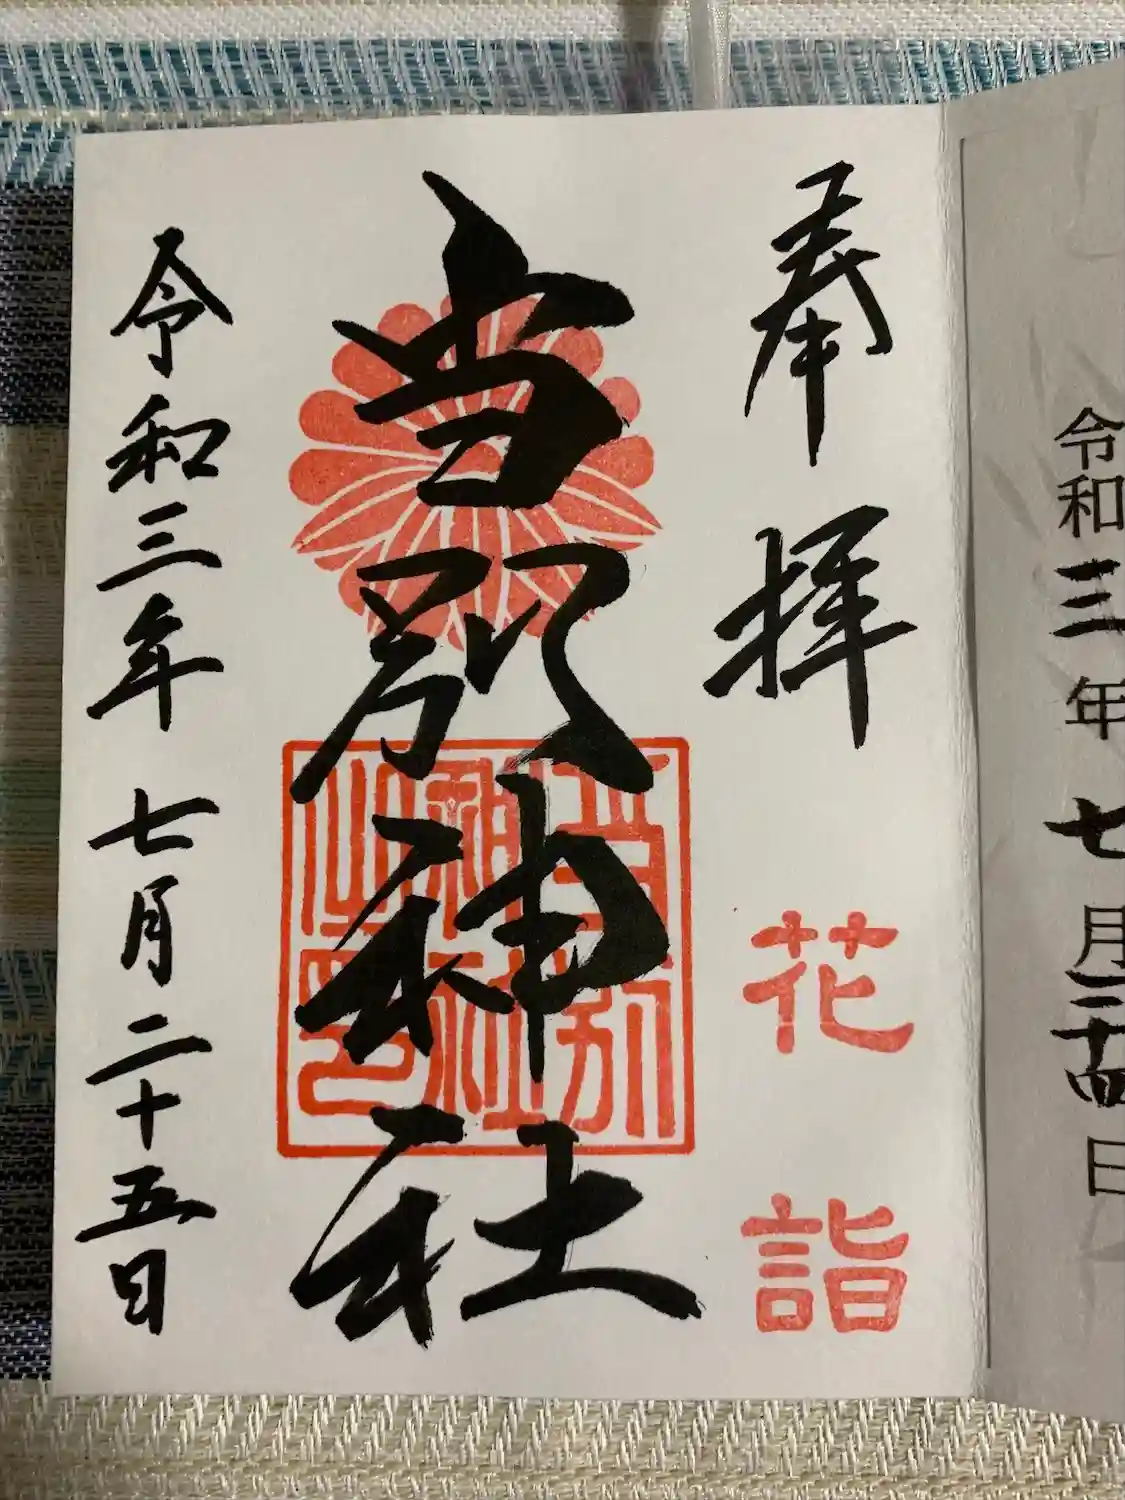 令和三年七月二十四日
奉拝
花詣
当別神社
當別神社之印
令和三年七月二十五日